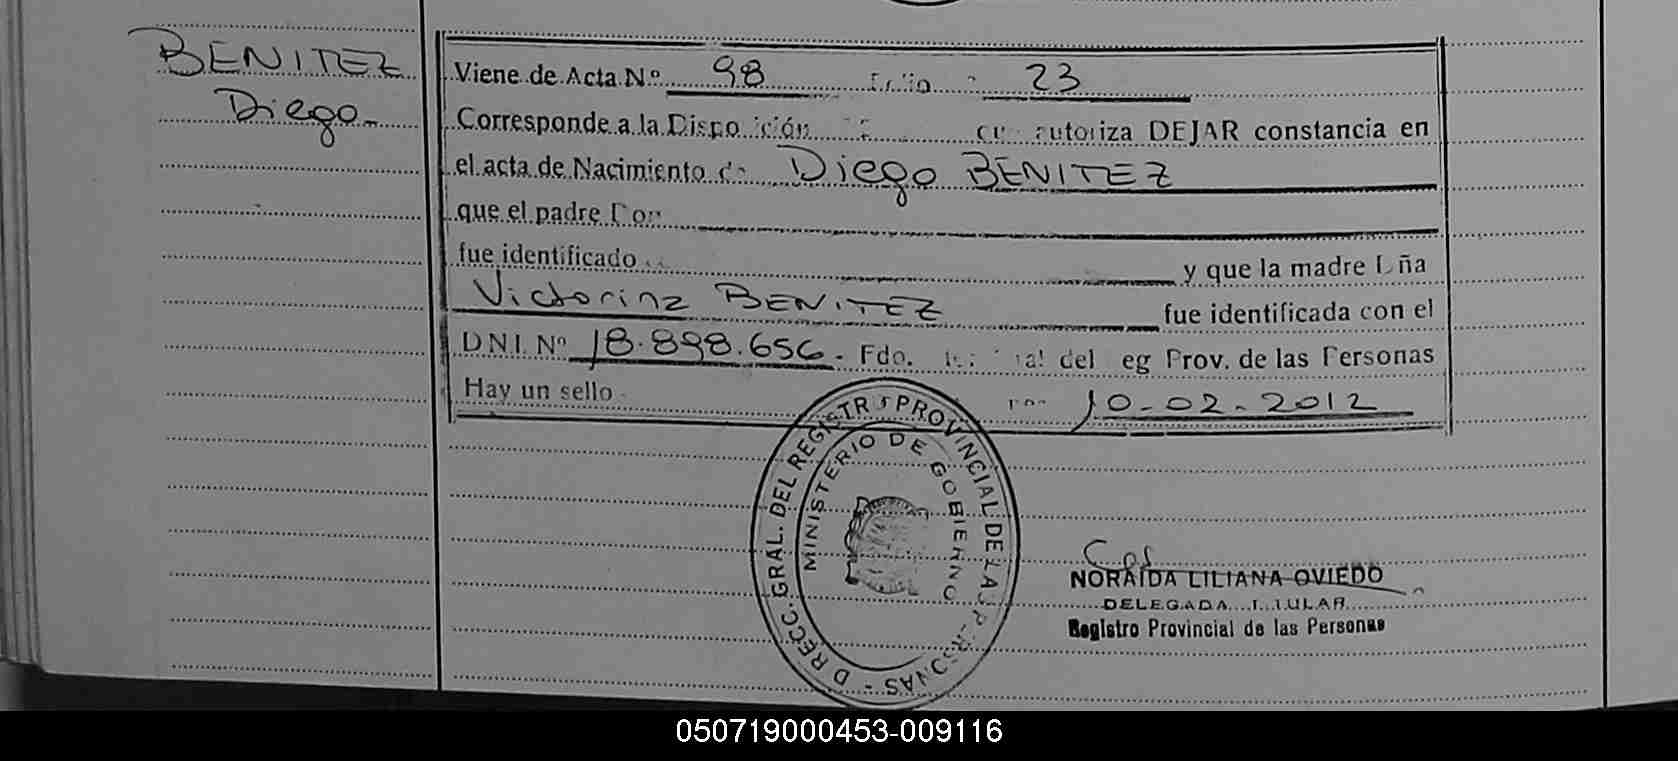 BENITEZ
Diego
Viene de Acta Nº 98 Folio 23
Corresponde a la Disposición que autoriza DEJAR constancia en
el acta de Nacimiento de Diego BENITEZ
que el padre Don
fue identificado y que la madre Dña
Victorina BENITEZ fue identificada con el
DNI. Nº 18.898.656. Fdo. del Reg Prov. de las Personas
Hay un sello 10-02-2012
DIRECC. GRAL. DEL REGISTRO PROVINCIAL DE LAS PERSONAS
MINISTERIO DE GOBIERNO
NORAIDA LILIANA OVIEDO
DELEGADA TITULAR
Registro Provincial de las Personas
050719000453-009116